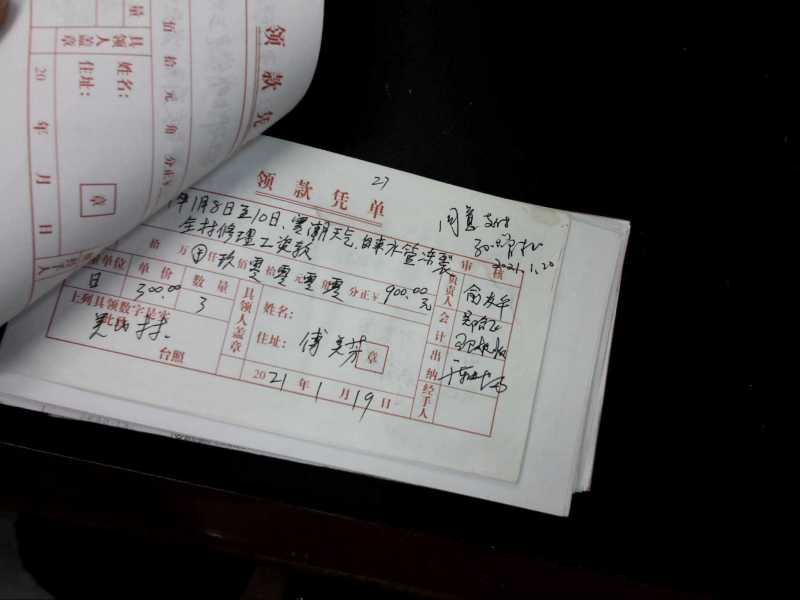 量
具领人盖章
姓名：
住址：
章
20 年 月 日
佰 拾 元 角 分正￥
领 款 凭
27
领 款 凭 单
同意支付
2021.1.20
年1月8日至10日、寒潮天气、自来水管冻裂
全村修理工资款
审核
拾 万 仟玖佰零拾零元零角零分正￥ 900.00元
单位 单价 数量
日 300.00 3
上列具领数字是实
此致
台照
具领人盖章
姓名：
住址：
傅美芳
章
2021年1月19日
负责人
会计
出纳
经手人